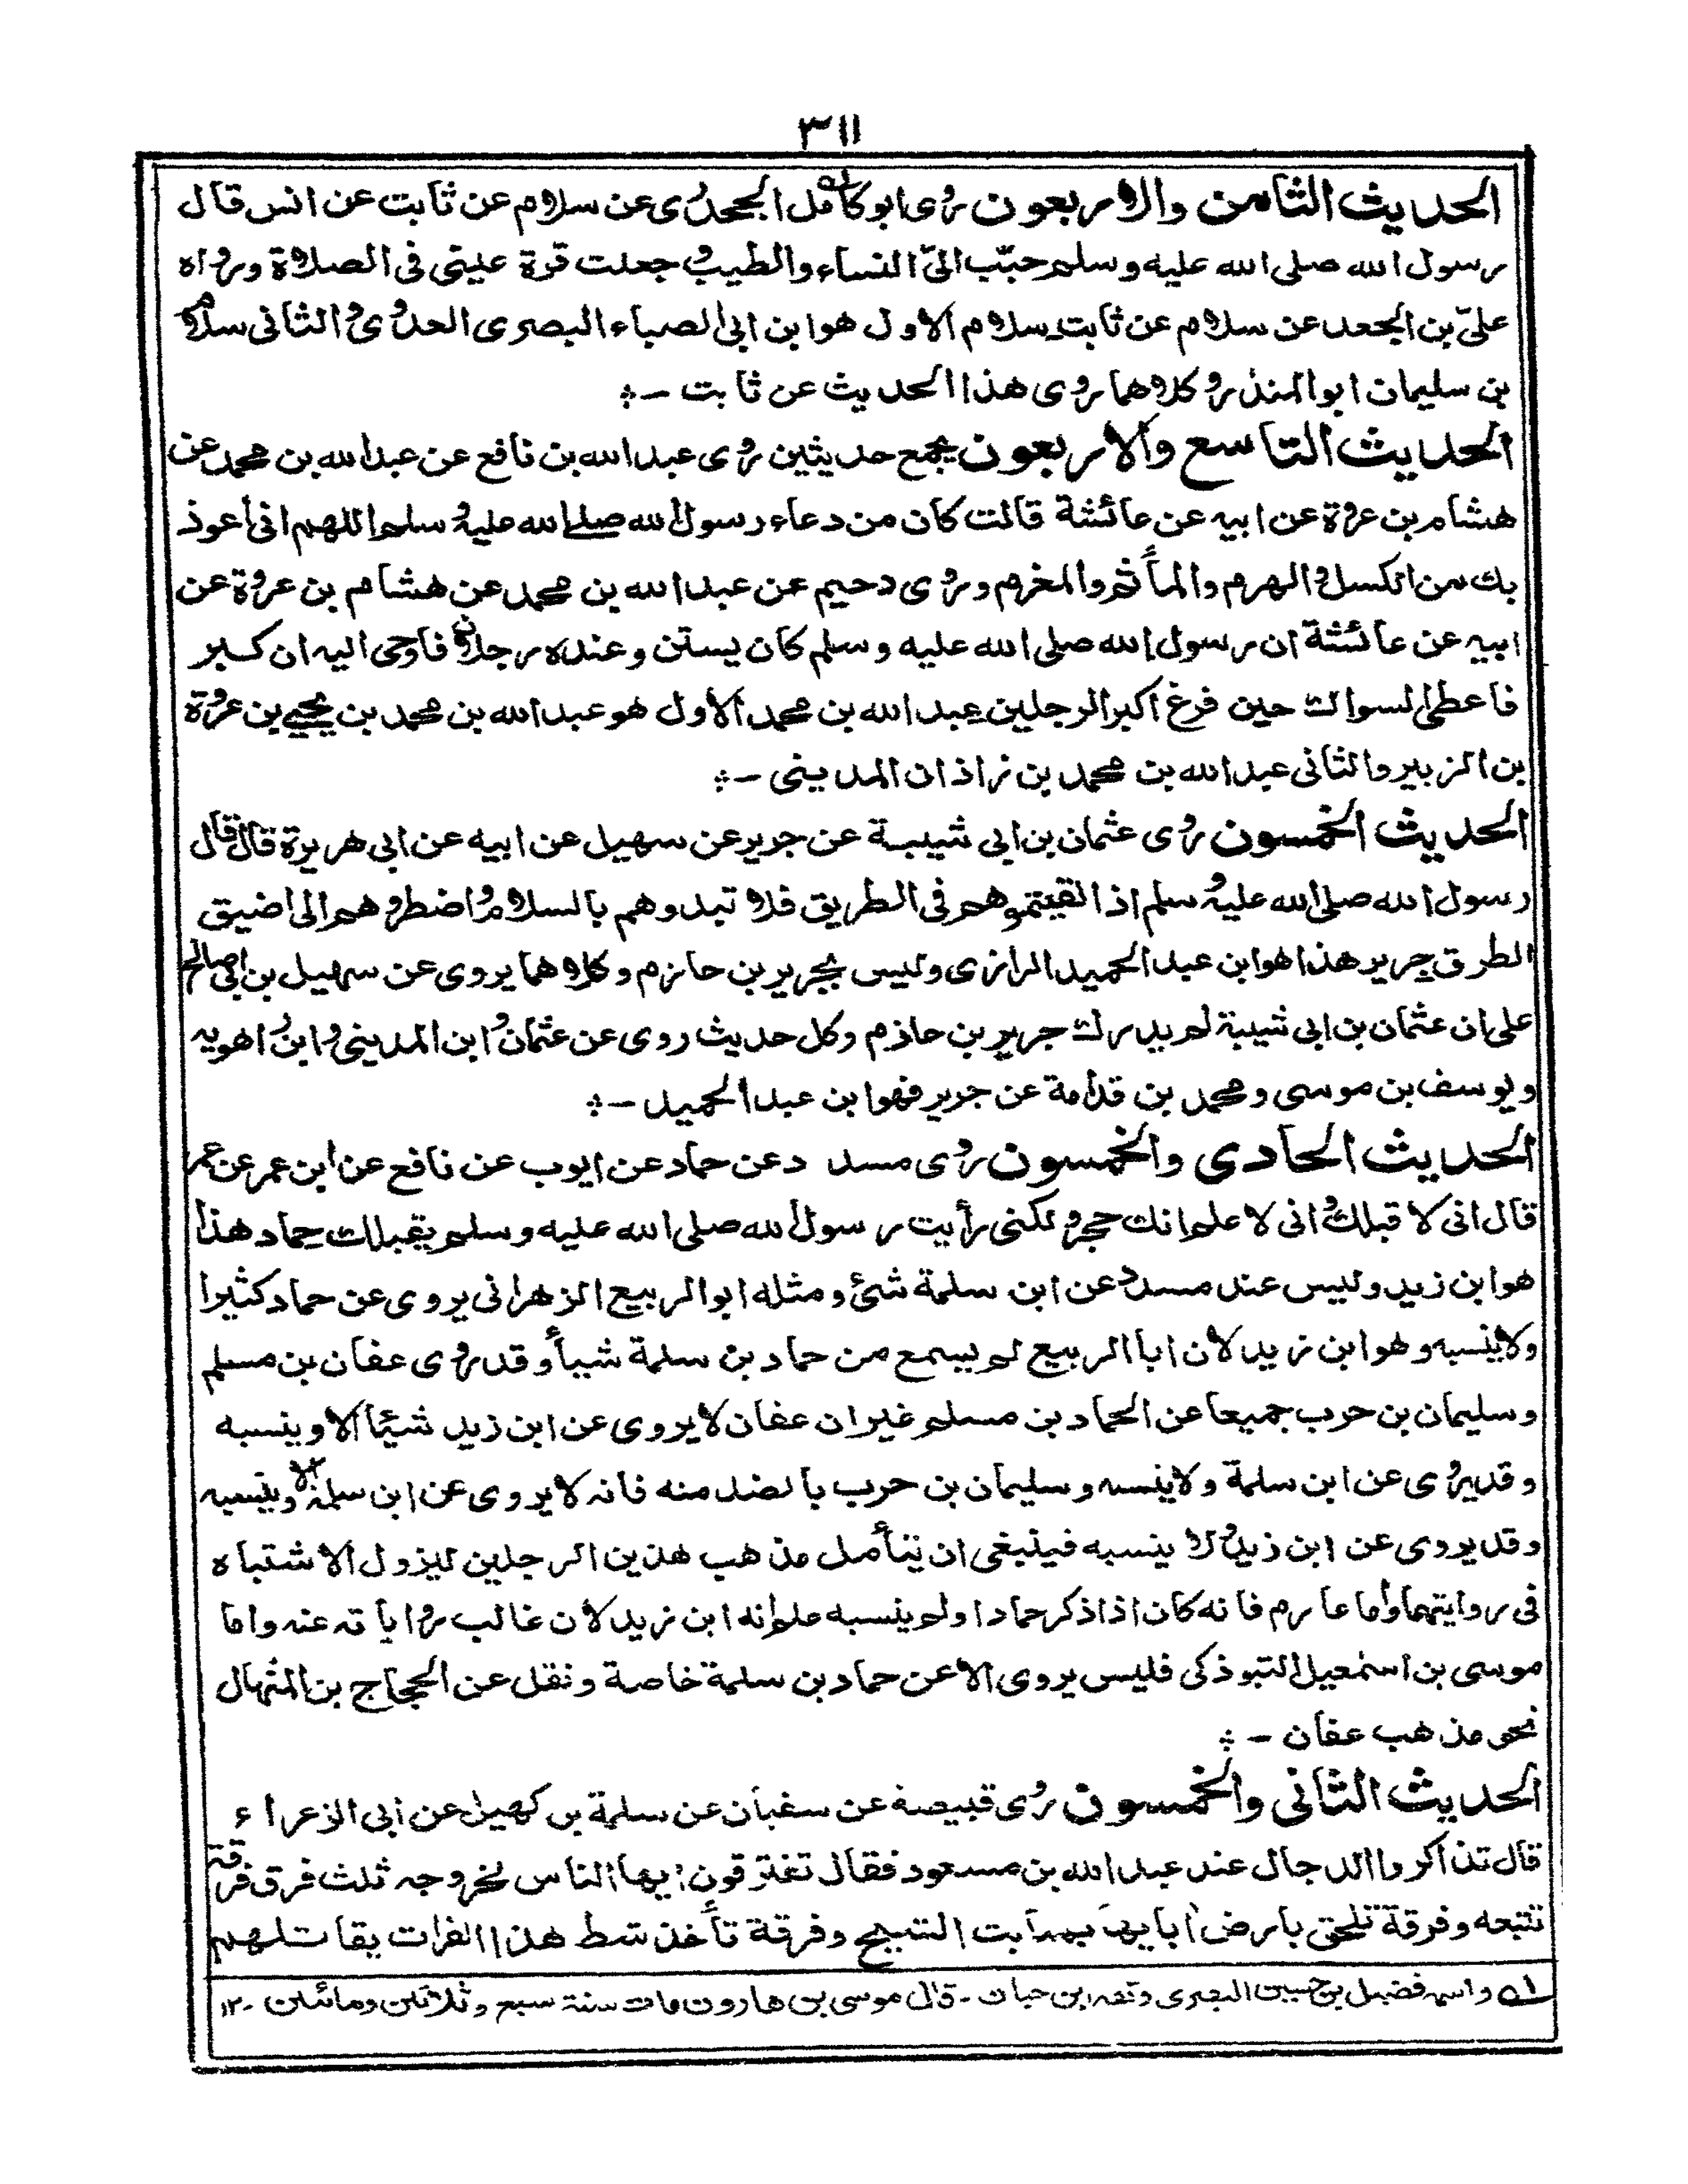 ٣١١
الحديث الثامن والاربعون روى ابو كامل الجحدرى عن سلام عن ثابت عن انس قال
رسول الله صلى الله عليه وسلم حبّب الىّ النساء والطيب وجعلت قرة عينى فى الصلاة ورواه
علىّ بن الجعد عن سلام عن ثابت سلام الاول هو ابن ابى الصباء البصرى العدوى والثانى سلام
بن سليمان ابو المنذر وكلاهما روى هذا الحديث عن ثابت -
الحديث التاسع والاربعون يجمع حديثين روى عبد الله بن نافع عن عبد الله بن محمد عن
هشام بن عروة عن ابيه عن عائشة قالت كان من دعاء رسول الله صلے الله عليه وسلم اللهم انى أعوذ
بك من الكسل والهرم والمأثم والمغرم وروى دحيم عن عبد الله بن محمد عن هشام بن عروة عن
ابيه عن عائشة ان رسول الله صلى الله عليه وسلم كان يستن وعنده رجلان فاوحى اليه ان كبر
فاعطى السواك حين فرغ أكبر الرجلين عبد الله بن محمد الأول هو عبد الله بن محمد بن يحيے بن عروة
بن الزبير والثانى عبد الله بن محمد بن زاذان المدينى -
الحديث الخمسون روى عثمان بن ابى شيبة عن جرير عن سهيل عن ابيه عن ابى هريرة قال قال
رسول الله صلى الله عليه وسلم اذا لقيتموهم فى الطريق فلا تبدوهم بالسلام واضطروهم الى اضيق
الطرق جرير هذا هو ابن عبد الحميد الرازى وليس بجرير بن حازم وكلاهما يروى عن سهيل بن ابى صالح
على ان عثمان بن ابى شيبة لم يدرك جرير بن حاذم وكل حديث روى عن عثمان وابن المدينى وابن راهويه
ويوسف بن موسى ومحمد بن قدامة عن جرير فهو ابن عبد الحميد -
الحديث الحادى والخمسون روى مسدد عن حماد عن ايوب عن نافع عن ابن عمر عن عمر
قال انى لا قبلك وانى لا علم انك حجر ولكنى رأيت رسول الله صلى الله عليه وسلم يقبلك حماد هذا
هو ابن زيد وليس عند مسدد عن ابن سلمة شئ ومثله ابو الربيع الزهرانى يروى عن حماد كثيرا
ولا ينسبه وهو ابن زيد لان ابا الربيع لم يسمع من حماد بن سلمة شيأ وقد روى عفان بن مسلم
وسليمان بن حرب جميعا عن الحماد بن مسلم غير ان عفان لا يروى عن ابن زيد شيئا الا وينسبه
وقد يروى عن ابن سلمة ولا ينسبه وسليمان بن حرب بالضد منه فانه لا يروى عن ابن سلمة الا وينسبه
وقد يروى عن ابن زيد ولا ينسبه فينبغى ان يتأمل مذهب هذين الرجلين ليزول الاشتباه
فى روايتهما وأما عارم فانه كان اذا ذكر حمادا ولم ينسبه علم انه ابن زيد لان غالب رواياته عنه واما
موسى بن اسمعيل التبوذكى فليس يروى الا عن حماد بن سلمة خاصة ونقل عن الحجاج بن المنهال
نحو مذهب عفان -
الحديث الثانى والخمسون روى قبيصة عن سفيان عن سلمة بن كهيل عن أبى الزعراء
قال تذاكروا الدجال عند عبد الله بن مسعود فقال تفترقون ايها الناس لخروجه ثلث فرق فرقة
تتبعه وفرقة تلحق بارض ابايها بمنابت الشيح وفرقة تأخذ شط هذا الفرات يقاتلهم
له واسمه فضيل بن حسين البصرى وثقه ابن حبان - قال موسى بن هارون مات سنة سبع وثلاثين ومائتين - ١٢